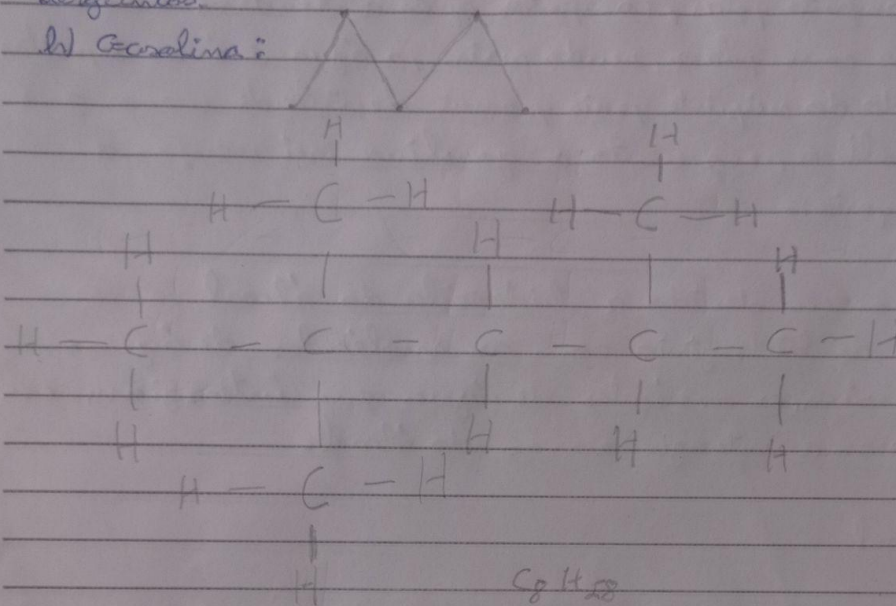 b) Gasolina:
H H
H — C — H H — C — H
H H H
H — C — C — C — C — C — H
H H H H
H — C — H
H
C8 H18